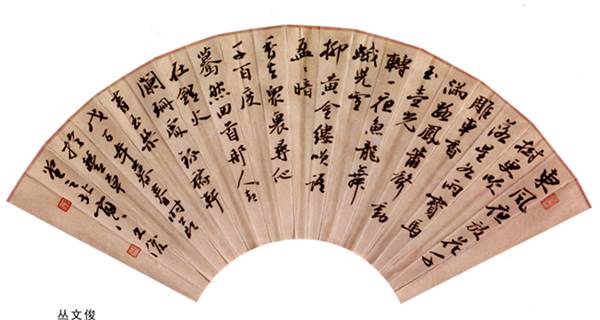 東風夜放花千
樹更吹
落星如雨寶馬
雕車香
滿路鳳簫聲動
玉壺光
轉一夜魚龍舞
蛾兒雪
柳黃金縷笑語
盈盈暗
香去衆裏尋他
千百度
驀然回首那人却
在燈火
闌珊處稼軒
青玉案
年暮春時
丛文俊